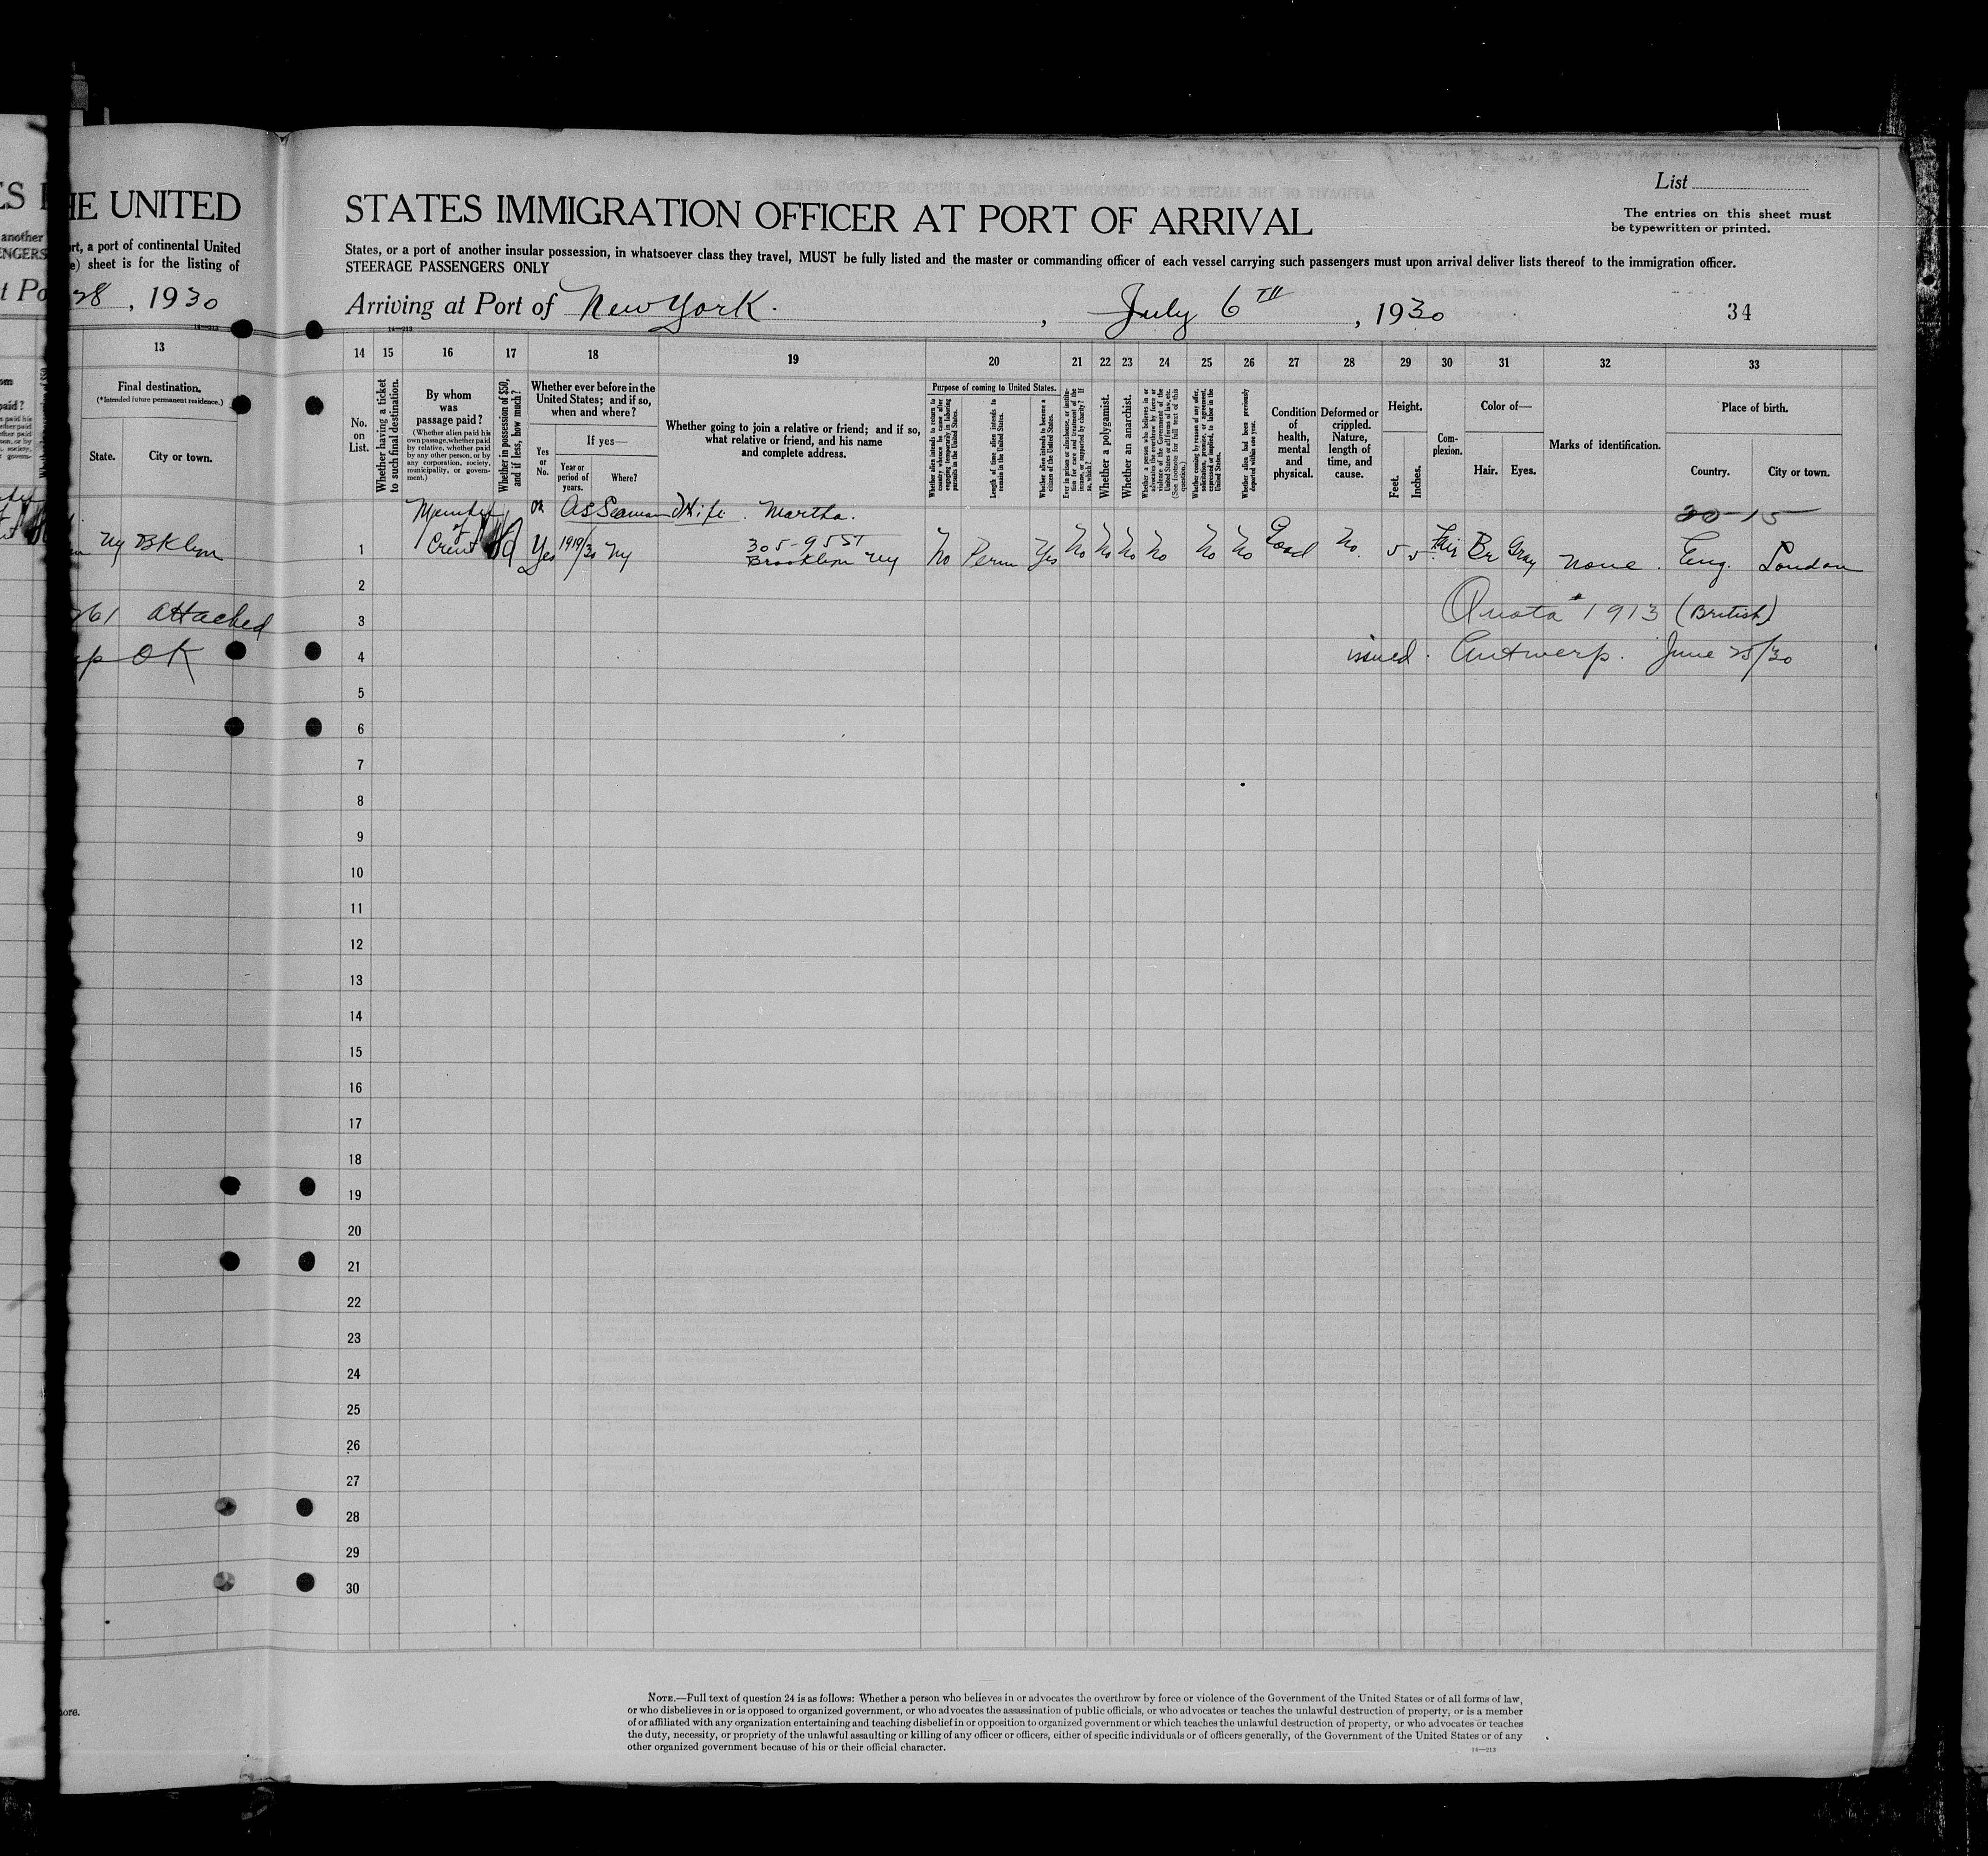 ES
HE UNITED
STATES IMMIGRATION OFFICER AT PORT OF ARRIVAL
List
The entries on this sheet must
be typewritten or printed.
another
rt, a port of continental United
States, or a port of another insular possession, in whatsoever class they travel, MUST be fully listed and the master or commanding officer of each vessel carrying such passengers must upon arrival deliver lists thereof to the immigration officer.
ENGERS
e) sheet is for the listing of
STEERAGE PASSENGERS ONLY
t Po
28, 1930
Arriving at Port of New York. , July 6TH, 1930
34
14—213
14—213
13 14 15 16 17 18 19 20 21 22 23 24 25 26 27 28 29 30 31 32 33
Final destination.
(*Intended future permanent residence.)
State.
City or town.
No. on List.
Whether having a ticket to such final destination.
By whom was passage paid?
(Whether alien paid his own passage, whether paid by relative, whether paid by any other person, or by any corporation, society, municipality, or government.)
Whether in possession of $50, and if less, how much?
Whether ever before in the United States; and if so, when and where?
Yes or No.
If yes—
Year or period of years.
Where?
Whether going to join a relative or friend; and if so, what relative or friend, and his name and complete address.
Purpose of coming to United States.
Whether alien intends to return to country whence he came after engaging temporarily in laboring pursuits in the United States.
Length of time alien intends to remain in the United States.
Whether alien intends to become a citizen of the United States.
Ever in prison or almshouse, or institution for care and treatment of the insane, or supported by charity? If so, which?
Whether a polygamist.
Whether an anarchist.
Whether a person who believes in or advocates the overthrow by force or violence of the Government of the United States or all forms of law, etc. (See footnote for full text of this question.)
Whether coming by reason of any offer, solicitation, promise, or agreement, expressed or implied, to labor in the United States.
Whether alien had been previously deported within one year.
Condition of health, mental and physical.
Deformed or crippled. Nature, length of time, and cause.
Height.
Feet.
Inches.
Complexion.
Color of—
Hair.
Eyes.
Marks of identification.
Place of birth.
Country.
City or town.
Member OR As Seaman Wife. Martha. 20-15
of
Ny BKlyn 1 Crew Yes 1919/30 Ny 305-95 ST No Perm Yes No No No No No No Good No. 5 5 Fair Br Gray None. Eng. London
Brooklyn Ny
2
261 attached 3 Quota # 1913 (British)
OK 4 issued. Antwerp. June 25/30
5
6
7
8
9
10
11
12
13
14
15
16
17
18
19
20
21
22
23
24
25
26
27
28
29
30
NOTE.—Full text of question 24 is as follows: Whether a person who believes in or advocates the overthrow by force or violence of the Government of the United States or of all forms of law,
or who disbelieves in or is opposed to organized government, or who advocates the assassination of public officials, or who advocates or teaches the unlawful destruction of property, or is a member
of or affiliated with any organization entertaining and teaching disbelief in or opposition to organized government or which teaches the unlawful destruction of property, or who advocates or teaches
the duty, necessity, or propriety of the unlawful assaulting or killing of any officer or officers, either of specific individuals or of officers generally, of the Government of the United States or of any
other organized government because of his or their official character.
14—213